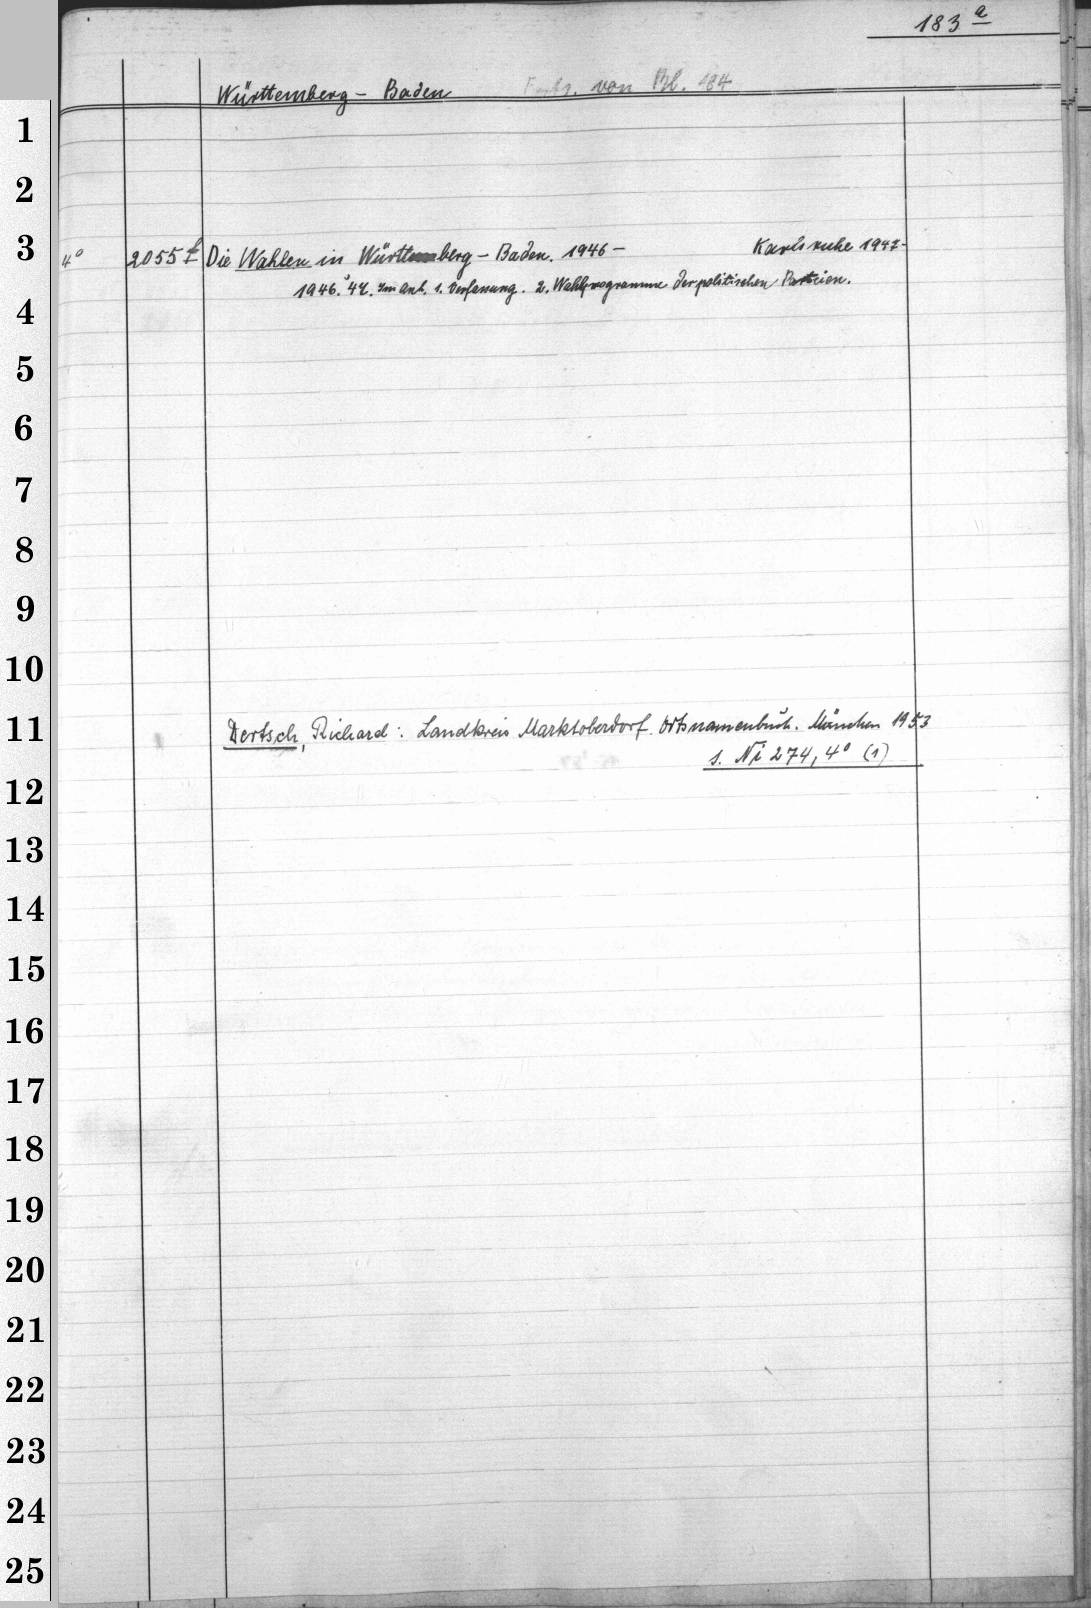 183 a
Württemberg - Baden Forts. von Bl. 184
1
2
3 4° 2055 f Die Wahlen in Württemberg - Baden. 1946 - Karlsruhe 1947-
1946. '47. Im Anh. 1. Verfassung. 2. Wahlprogramme der politischen Parteien.
4
5
6
7
8
9
10
11 Dertsch, Richard: Landkreis Marktoberdorf. Ortsnamenbuch. München 1953
s. Ni 274, 4° (1)
12
13
14
15
16
17
18
19
20
21
22
23
24
25